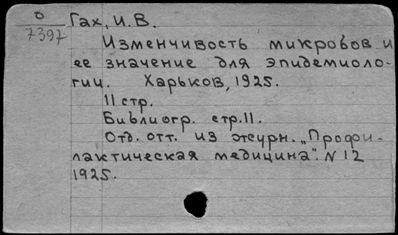 0
7397
Гах, И.В.
Изменчивость микробов и
ее значение для эпидемиоло-
гии. Харьков, 1925.
11 стр.
Библиогр. стр. 11.
Отд. отт. из журн. „Профи-
лактическая медицина". N 12
1925.